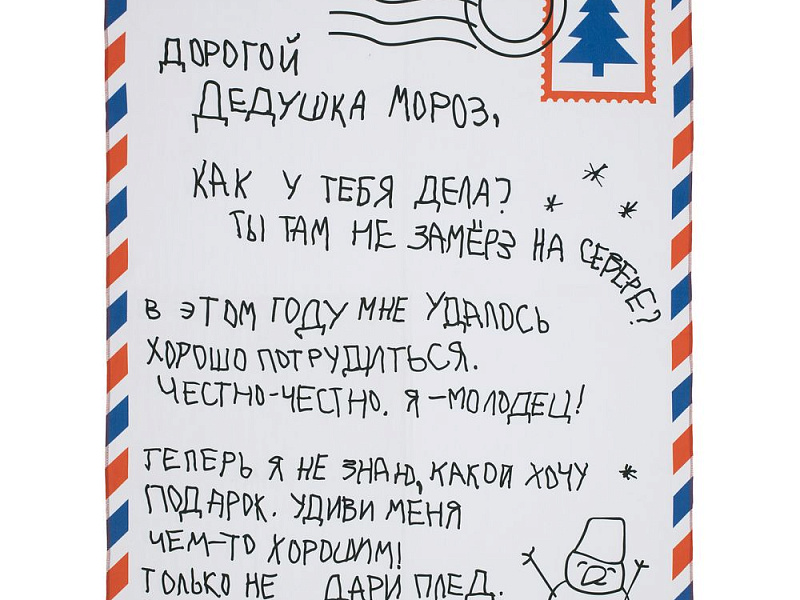 ДОРОГОЙ
ДЕДУШКА МОРОЗ,
КАК У ТЕБЯ ДЕЛА?
ТЫ ТАМ НЕ ЗАМЁРЗ НА СЕВЕРЕ?
В ЭТОМ ГОДУ МНЕ УДАЛОСЬ
ХОРОШО ПОТРУДИТЬСЯ.
ЧЕСТНО-ЧЕСТНО. Я-МОЛОДЕЦ!
ТЕПЕРЬ Я НЕ ЗНАЮ, КАКОЙ ХОЧУ
ПОДАРОК. УДИВИ МЕНЯ
ЧЕМ-ТО ХОРОШИМ!
ТОЛЬКО НЕ ДАРИ ПЛЕД.